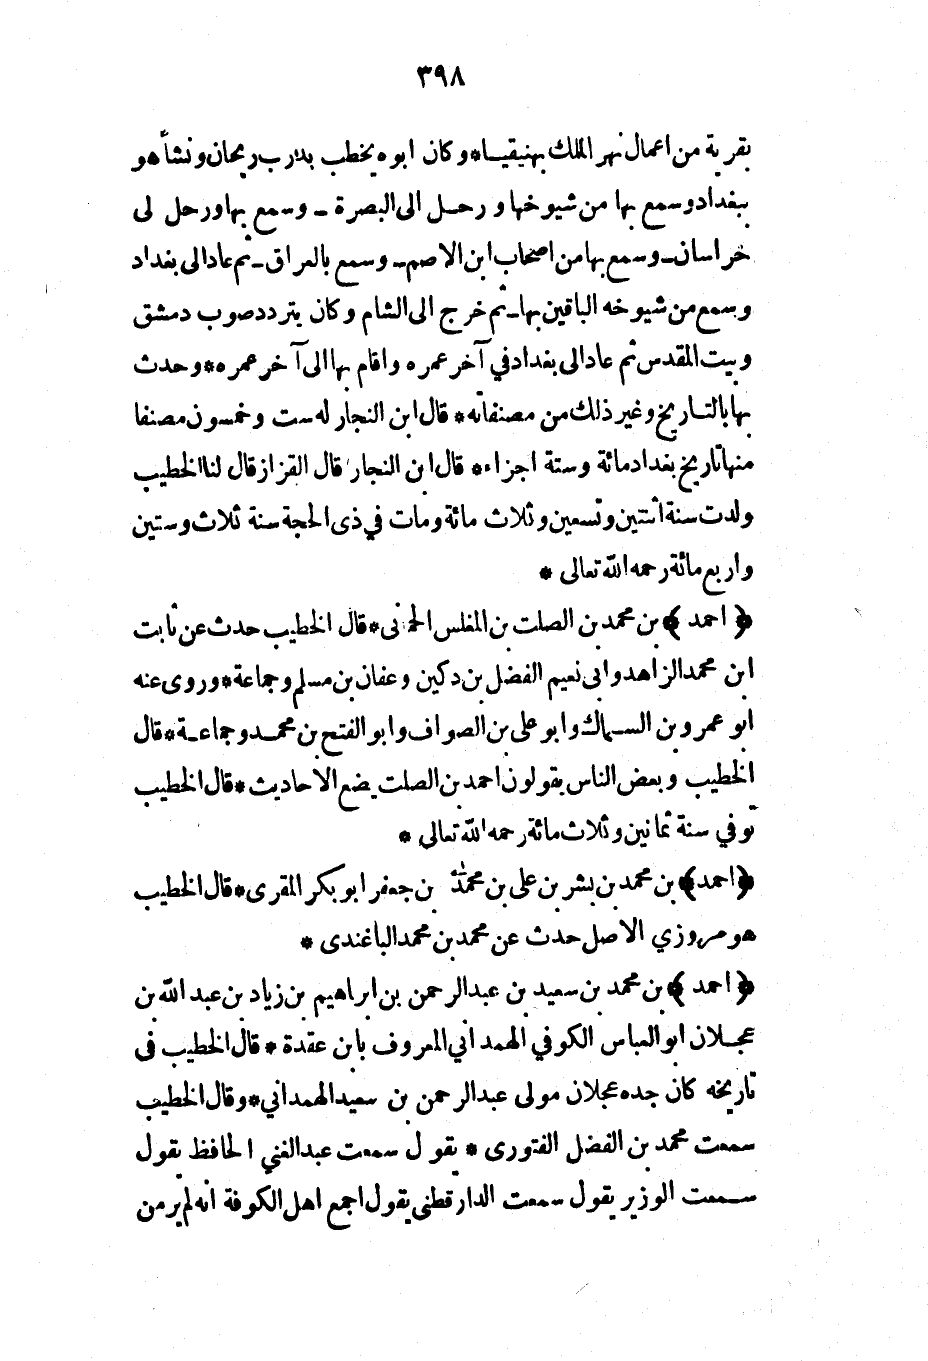 ٣٩٨
بقرية من اعمال نهر الملك بهنيقيا*وكان ابوه يخطب بدرب ريحان ونشأ هو
ببغداد وسمع بها من شيوخها و رحل الى البصرة ـ وسمع بها ورحل لى
خراسان ـ وسمع بها من اصحاب ابن الاصم ـ وسمع بالعراق ـ ثم عاد الى بغداد
وسمع من شيوخه الباقين بها ـ ثم خرج الى الشام وكان يتردد صوب دمشق
وبيت المقدس ثم عاد الى بغداد في آخر عمره واقام بها الى آخر عمره*وحدث
بها بالتاريخ وغير ذلك من مصنفاته* قال ابن النجار له ست وخمسون مصنفا
منها تاريخ بغداد مائة وستة اجزاء* قال ابن النجار قال القزاز قال لنا الخطيب
ولدت سنة اثنتين وتسعين وثلاث مائة ومات في ذى الحجة سنة ثلاث وستين
واربع مائة رحمه الله تعالى *
﴿ احمد ﴾ بن محمد بن الصلت بن المغلس الحمانى*قال الخطيب حدث عن ثابت
ابن محمد الزاهد وابى نعيم الفضل بن دكين وعفان بن مسلم وجماعة*وروى عنه
ابو عمرو بن السماك وابو على بن الصواف وابو الفتح بن محمد وجماعة*قال
الخطيب وبعض الناس يقولون احمد بن الصلت يضع الاحاديث*قال الخطيب
توفي سنة ثمانين وثلاث مائة رحمه الله تعالى *
﴿احمد﴾ بن محمد بن بشر بن على بن محمد بن جعفر ابو بكر المقرى*قال الخطيب
هو مروزي الاصل حدث عن محمد بن محمد الباغندى *
﴿ احمد ﴾ بن محمد بن سعيد بن عبد الرحمن بن ابراهيم بن زياد بن عبد الله بن
عجلان ابو العباس الكوفي الهمداني المعروف بابن عقدة * قال الخطيب فى
تاريخه كان جده عجلان مولى عبد الرحمن بن سعيد الهمداني*وقال الخطيب
سمعت محمد بن الفضل الفتورى * يقول سمعت عبد الغني الحافظ يقول
سمعت الوزير يقول سمعت الدارقطنى يقول اجمع اهل الكوفة انه لم ير من